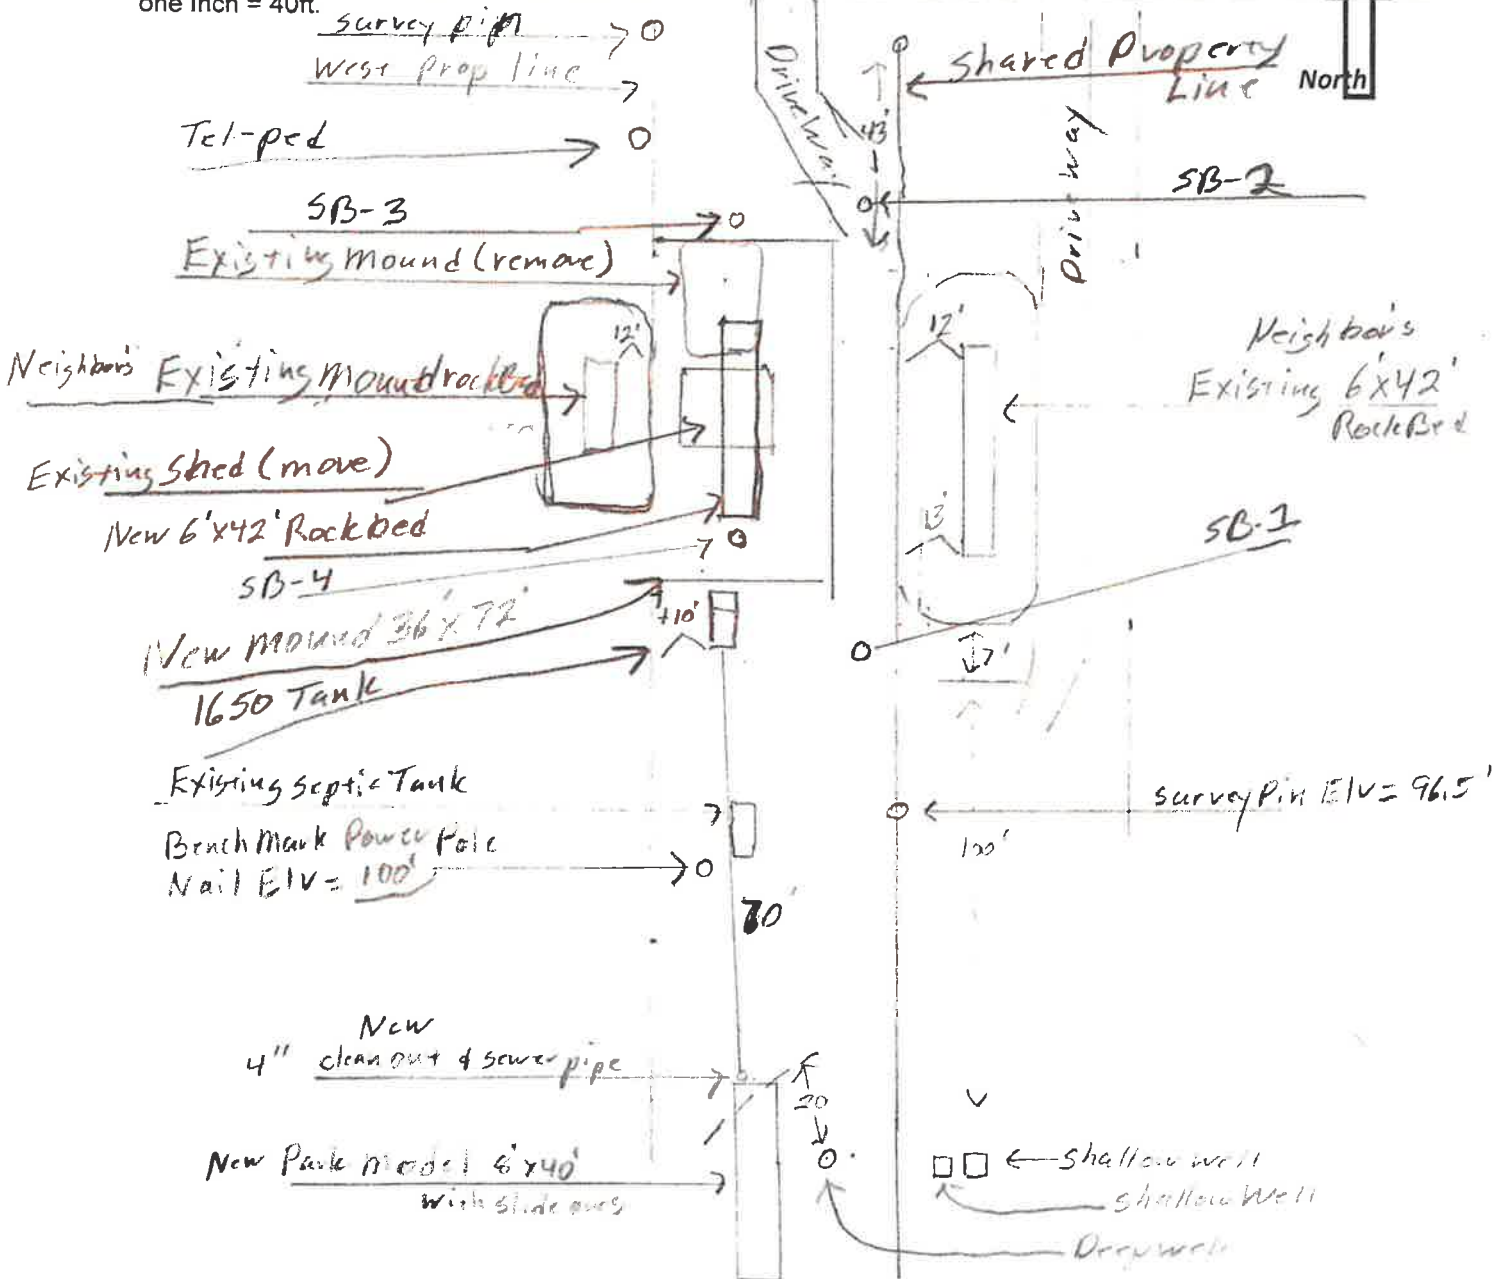 one inch = 40ft.
survey pin
West Prop line
Tel-ped
SB-3
Existing mound (remove)
Neighbors Existing mound rockBed
12'
Existing Shed (move)
New 6'x42' Rockbed
SB-4
New mound 36'x72'
+10'
1650 Tank
Existing septic Tank
Bench Mark Power Pole
Nail Elv = 100'
70'
New
4" clean out & sewer pipe
New Park Model 8'x40'
with slide outs
Driveway
43'
Shared Property
Line
North
Driveway
SB-2
12'
Neighbor's
Existing 6'x42'
RockBed
13'
SB-1
7'
survey Pin Elv = 96.5'
100'
20
shallow well
shallow Well
Deepwell